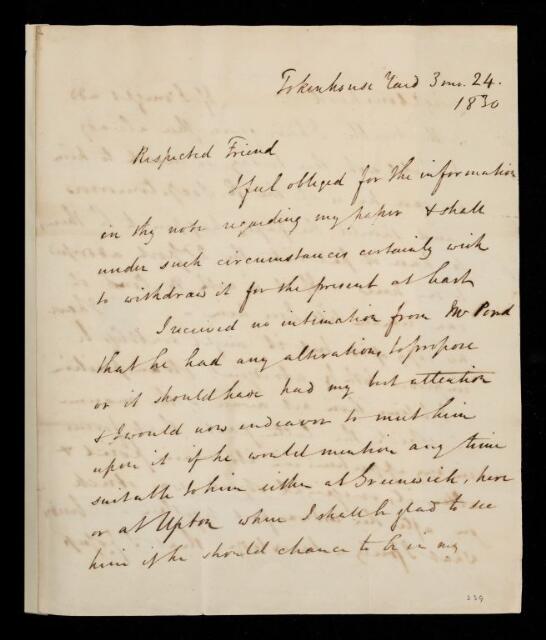 Tokenhouse Yard 3 mo. 24.
1830
Respected Friend
I feel obliged for the information
in thy note regarding my paper & shall
under such circumstances certainly wish
to withdraw it for the present at least
I received no intimation from Mr Pond
that he had any alterations to propose
or it should have had my best attention
& I would now endeavor to meet him
upon it if he would mention any time
suitable to him either at Greenwich, here
or at Upton where I shall be glad to see
him if he should chance to be in my
239